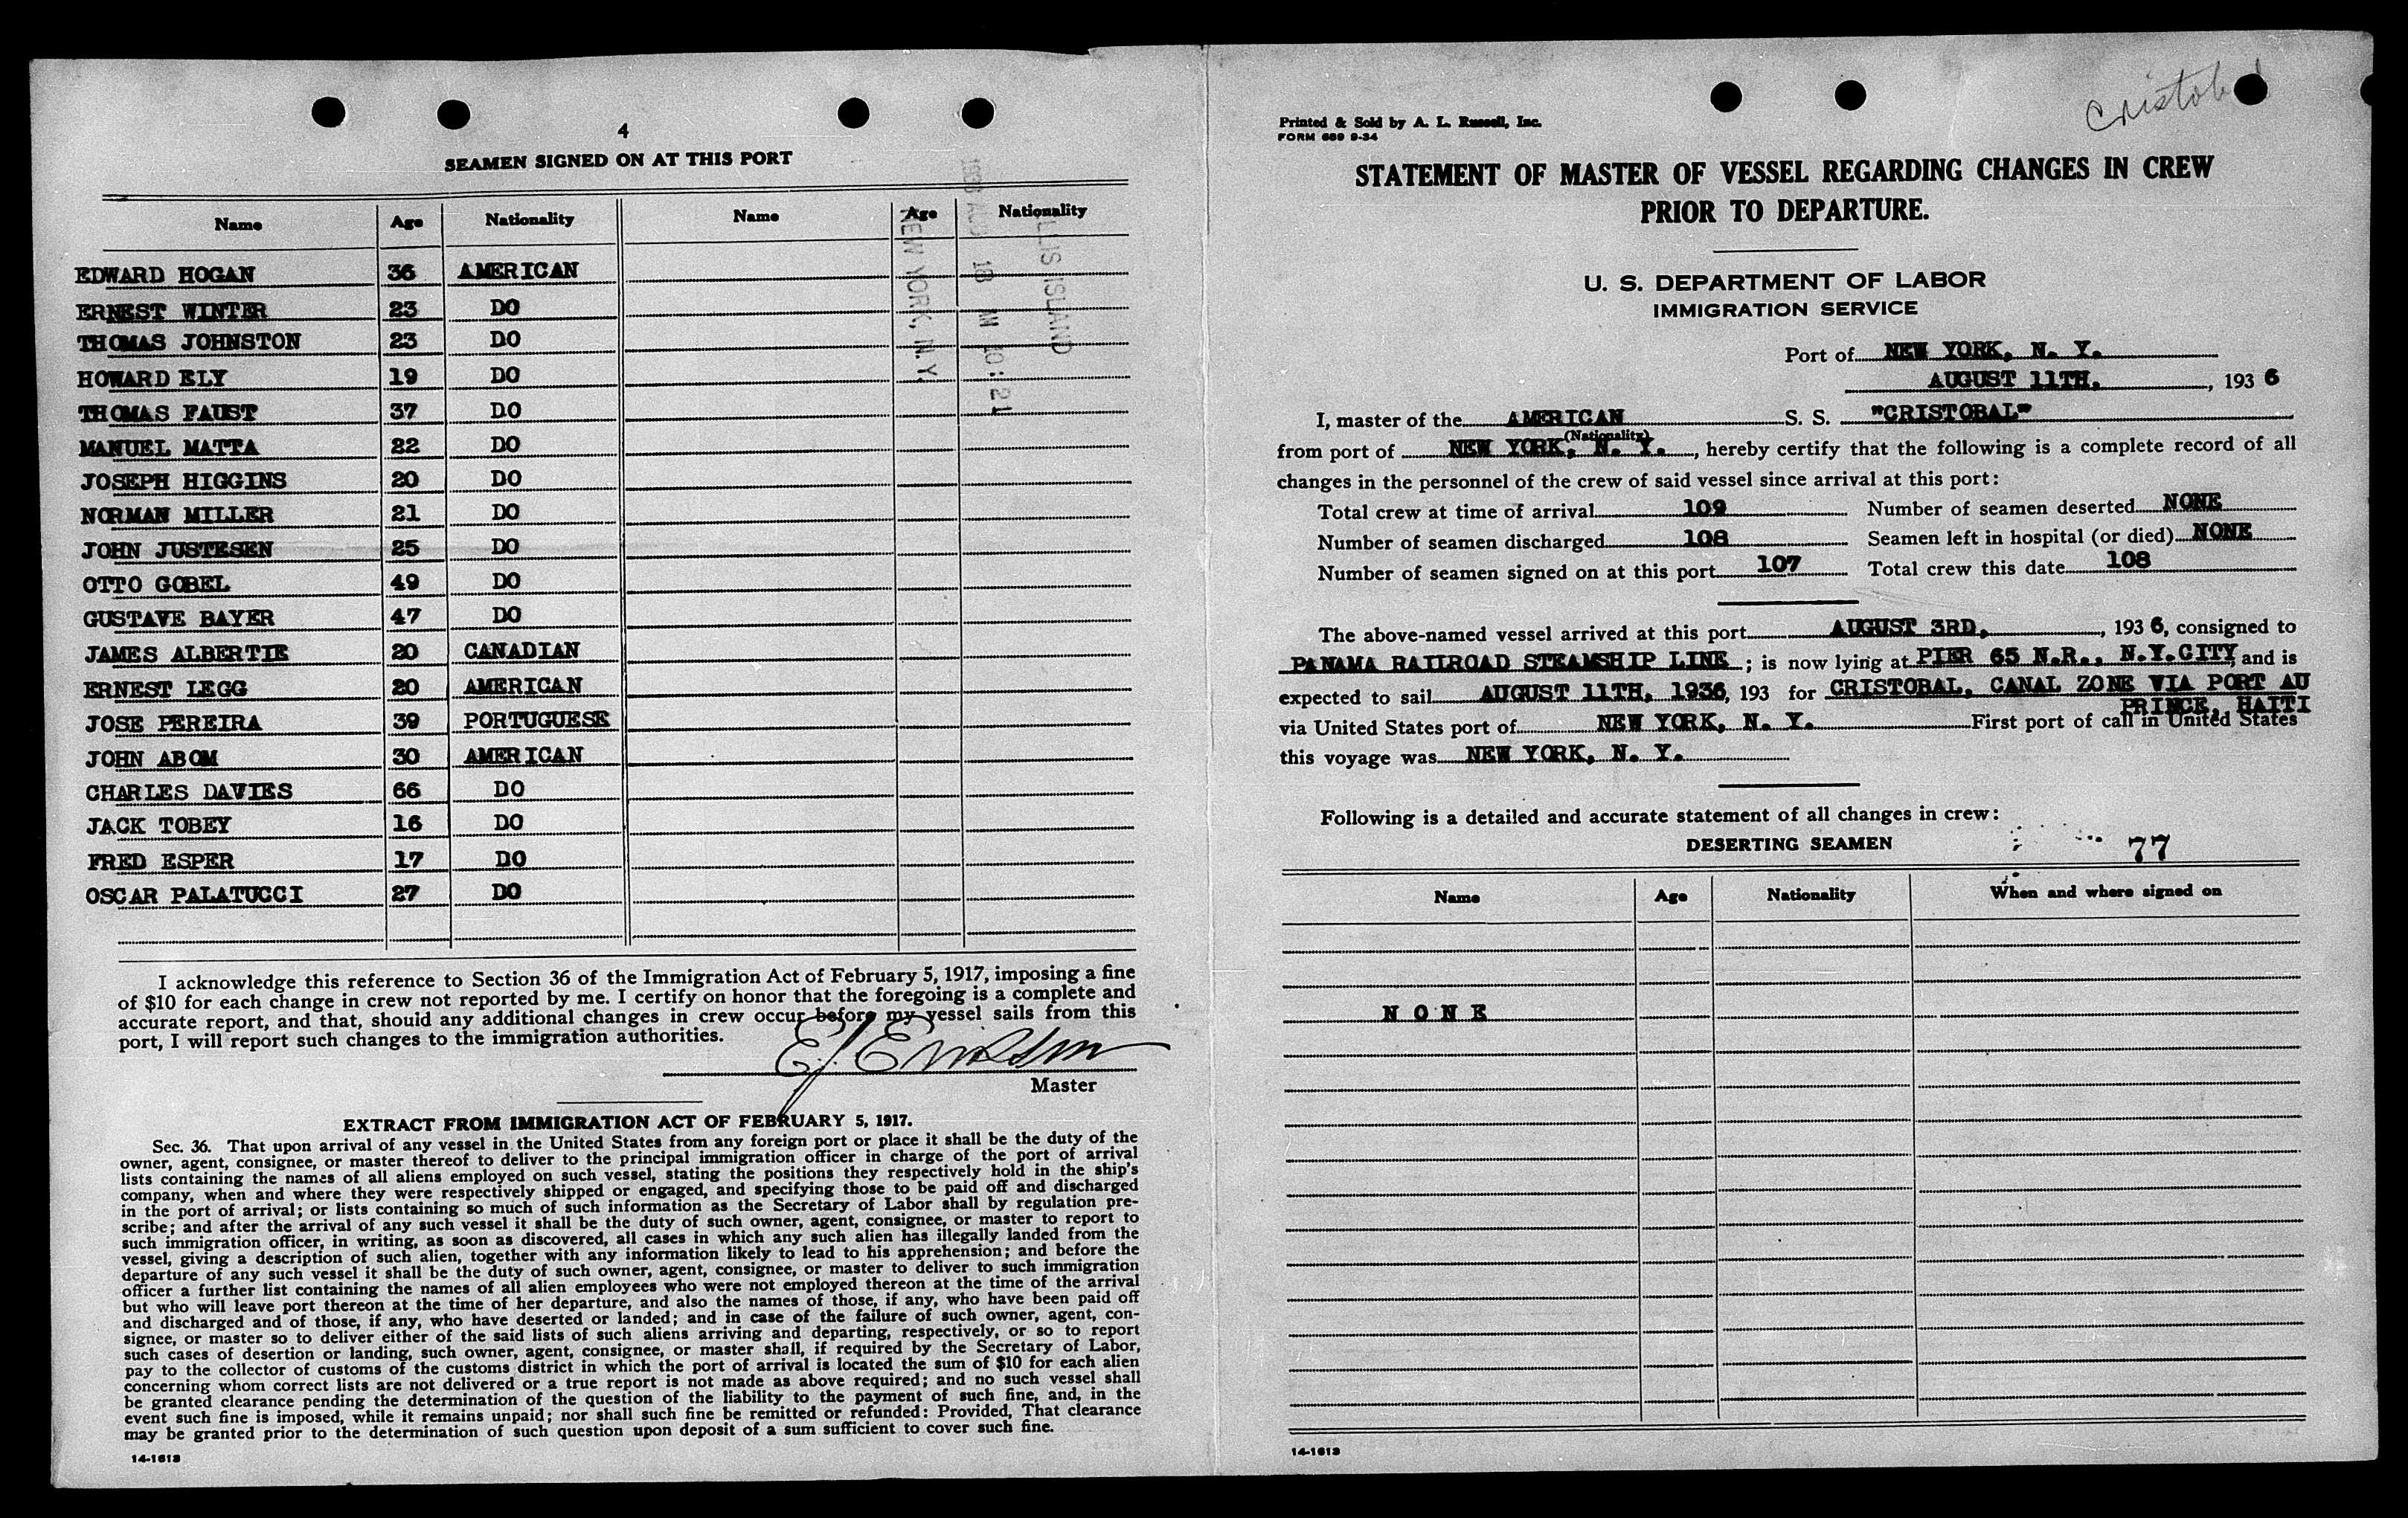 4
SEAMEN SIGNED ON AT THIS PORT
Name Age Nationality Name Age Nationality
EDWARD HOGAN 36 AMERICAN
ERNEST WINTER 23 DO
THOMAS JOHNSTON 23 DO
HOWARD ELY 19 DO
THOMAS FAUST 37 DO
MANUEL MATTA 22 DO
JOSEPH HIGGINS 20 DO
NORMAN MILLER 21 DO
JOHN JUSTESEN 25 DO
OTTO GOBEL 49 DO
GUSTAVE BAYER 47 DO
JAMES ALBERTIE 20 CANADIAN
ERNEST LEGG 20 AMERICAN
JOSE PEREIRA 39 PORTUGUESE
JOHN ABOM 30 AMERICAN
CHARLES DAVIES 66 DO
JACK TOBEY 16 DO
FRED ESPER 17 DO
OSCAR PALATUCCI 27 DO
ELLIS ISLAND
1936 AUG 18 M 10:21
NEW YORK, N.Y.
I acknowledge this reference to Section 36 of the Immigration Act of February 5, 1917, imposing a fine
of $10 for each change in crew not reported by me. I certify on honor that the foregoing is a complete and
accurate report, and that, should any additional changes in crew occur before my vessel sails from this
port, I will report such changes to the immigration authorities.
Master
EXTRACT FROM IMMIGRATION ACT OF FEBRUARY 5, 1917.
Sec. 36. That upon arrival of any vessel in the United States from any foreign port or place it shall be the duty of the
owner, agent, consignee, or master thereof to deliver to the principal immigration officer in charge of the port of arrival
lists containing the names of all aliens employed on such vessel, stating the positions they respectively hold in the ship's
company, when and where they were respectively shipped or engaged, and specifying those to be paid off and discharged
in the port of arrival; or lists containing so much of such information as the Secretary of Labor shall by regulation pre-
scribe; and after the arrival of any such vessel it shall be the duty of such owner, agent, consignee, or master to report to
such immigration officer, in writing, as soon as discovered, all cases in which any such alien has illegally landed from the
vessel, giving a description of such alien, together with any information likely to lead to his apprehension; and before the
departure of any such vessel it shall be the duty of such owner, agent, consignee, or master to deliver to such immigration
officer a further list containing the names of all alien employees who were not employed thereon at the time of the arrival
but who will leave port thereon at the time of her departure, and also the names of those, if any, who have been paid off
and discharged and of those, if any, who have deserted or landed; and in case of the failure of such owner, agent, con-
signee, or master so to deliver either of the said lists of such aliens arriving and departing, respectively, or so to report
such cases of desertion or landing, such owner, agent, consignee, or master shall, if required by the Secretary of Labor,
pay to the collector of customs of the customs district in which the port of arrival is located the sum of $10 for each alien
concerning whom correct lists are not delivered or a true report is not made as above required; and no such vessel shall
be granted clearance pending the determination of the question of the liability to the payment of such fine, and, in the
event such fine is imposed, while it remains unpaid; nor shall such fine be remitted or refunded: Provided, That clearance
may be granted prior to the determination of such question upon deposit of a sum sufficient to cover such fine.
14-1613
Cristobal
Printed & Sold by A. L. Russell, Inc.
FORM 689 9-34
STATEMENT OF MASTER OF VESSEL REGARDING CHANGES IN CREW
PRIOR TO DEPARTURE.
U. S. DEPARTMENT OF LABOR
IMMIGRATION SERVICE
Port of NEW YORK, N. Y.
AUGUST 11TH, , 193 6
I, master of the AMERICAN S. S. "CRISTOBAL"
(Nationality)
from port of NEW YORK, N. Y. , hereby certify that the following is a complete record of all
changes in the personnel of the crew of said vessel since arrival at this port:
Total crew at time of arrival 109 Number of seamen deserted NONE
Number of seamen discharged 108 Seamen left in hospital (or died) NONE
Number of seamen signed on at this port 107 Total crew this date 108
The above-named vessel arrived at this port AUGUST 3RD, , 193 6, consigned to
PANAMA RAILROAD STEAMSHIP LINE ; is now lying at PIER 65 N.R., N.Y.CITY and is
expected to sail AUGUST 11TH, 1936, 193 for CRISTOBAL, CANAL ZONE VIA PORT AU
PRINCE, HAITI
via United States port of NEW YORK, N. Y. First port of call in United States
this voyage was NEW YORK, N. Y.
Following is a detailed and accurate statement of all changes in crew:
DESERTING SEAMEN 77
Name Age Nationality When and where signed on
N O N E
14-1613